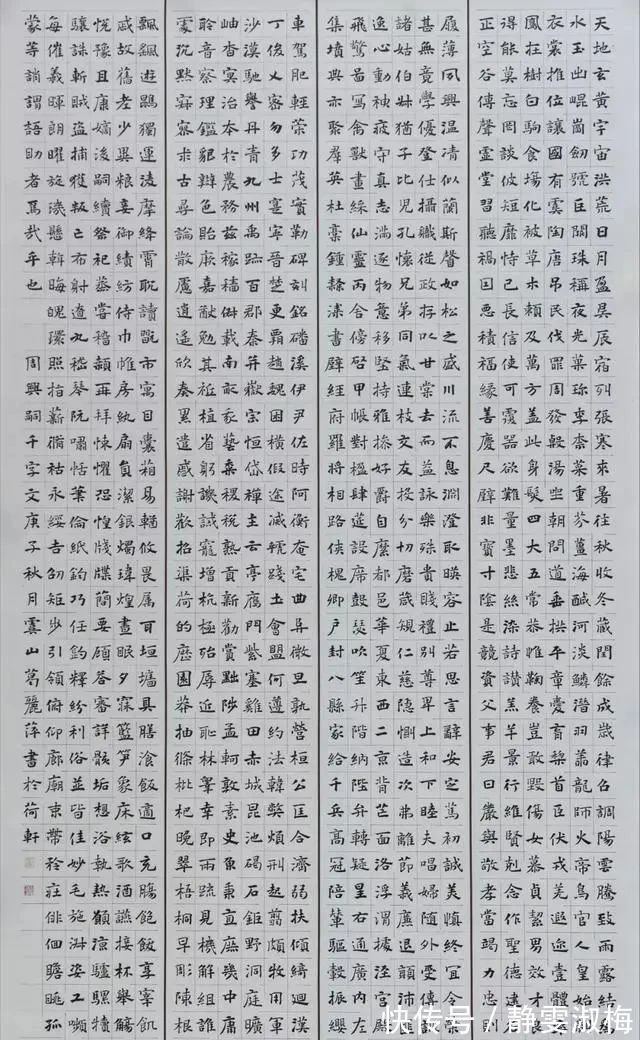 天地玄黃宇宙洪荒日月盈昃辰宿列張寒來暑往秋收冬藏閏餘成歲律呂調陽雲騰致雨露結爲
水玉出崐崗劍號巨闕珠稱夜光菓珍李柰菜重芥薑海醎河淡鱗潛羽翔龍師火帝鳥官人皇始制
衣裳推位讓國有虞陶唐弔民伐罪周發殷湯坐朝問道垂拱平章愛育黎首臣伏戎羌遐邇壹體率
鳳在樹白駒食場化被草木賴及萬方蓋此身髮四大五常恭惟鞠養豈敢毀傷女慕貞潔男效才良
得能莫忘罔談彼短靡恃己長信使可覆器欲難量墨悲絲染詩讚羔羊景行維賢剋念作聖德建名
正空谷傳聲虛堂習聽禍因惡積福緣善慶尺璧非寶寸陰是競資父事君曰嚴與敬孝當竭力忠則
履薄夙興溫凊似蘭斯馨如松之盛川流不息淵澄取暎容止若思言辭安定篤初誠美慎終宜令榮
甚無竟學優登仕攝職從政存以甘棠去而益詠樂殊貴賤禮別尊卑上和下睦夫唱婦隨外受傅訓
諸姑伯叔猶子比兒孔懷兄弟同氣連枝交友投分切磨箴規仁慈隱惻造次弗離節義廉退顛沛匪
逸心動神疲守真志滿逐物意移堅持雅操好爵自縻都邑華夏東西二京背芒面洛浮渭據涇宮殿
飛驚圖寫禽獸畫綵仙靈丙舍傍啟甲帳對楹肆筵設席鼓瑟吹笙升階納陛弁轉疑星右通廣內左
集墳典亦聚羣英杜稾鍾隸漆書壁經府羅將相路俠槐卿戶封八縣家給千兵高冠陪輦驅轂振纓
車駕肥輕策功茂實勒碑刻銘磻溪伊尹佐時阿衡奄宅曲阜微旦孰營桓公匡合濟弱扶傾綺迴漢
丁俊乂密勿多士寔寧晉楚更霸趙魏困橫假途滅虢踐土會盟何遵約法韓弊煩刑起翦頗牧用軍
沙漠馳譽丹青九州禹跡百郡秦并嶽宗恒岱禪主云亭鴈門紫塞雞田赤城昆池碣石鉅野洞庭曠
岫杳冥治本於農務茲稼穡俶載南畝我藝黍稷稅熟貢新勸賞黜陟孟軻敦素史魚秉直庶幾中庸
聆音察理鑑貌辨色貽厥嘉猷勉其祗植省躬譏誡寵增抗極殆辱近恥林皋幸即兩疏見機解組誰
處沉默寂寥求古尋論散慮逍遙欣奏累遣慼謝歡招渠荷的歷園莽抽條枇杷晚翠梧桐早彫陳根
飄颻遊鵾獨運凌摩絳霄耽讀翫市寓目囊箱易輶攸畏屬耳垣牆具膳飡飯適口充腸飽飫享宰飢
慼故舊老少異糧妾御績紡侍巾帷房紈扇員潔銀燭煒煌晝眠夕寐籃笋象床絃歌酒讌接杯舉觴
悅豫且康嫡後嗣續祭祀蒸嘗稽顙再拜悚懼恐惶牋牒簡要顧答審詳骸垢想浴執熱願涼驢騾犢
驤誅斬賊盜捕獲叛亡布射遼丸嵇琴阮嘯恬筆倫紙鈞巧任釣釋紛利俗並皆佳妙毛施淑姿工嚬
每催羲暉朗曜旋璣懸斡晦魄環照指薪脩祜永綏吉劭矩步引領俯仰廊廟束帶矜莊徘佪瞻眺孤
蒙等誚謂語助者焉哉乎也 周興嗣千字文庚子秋月雲山葛麗萍書於荷軒
快传号／静雯淑梅